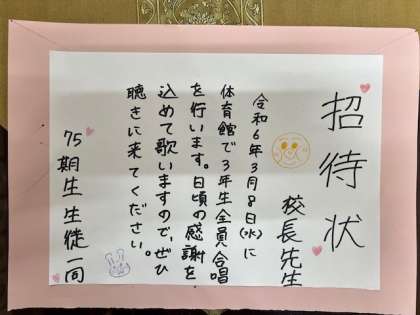 招待状
校長先生
令和6年3月8日(水)に
体育館で3年生全員合唱
を行います。日頃の感謝を
込めて歌いますので、ぜひ
聴きに来てください。
75期生生徒一同